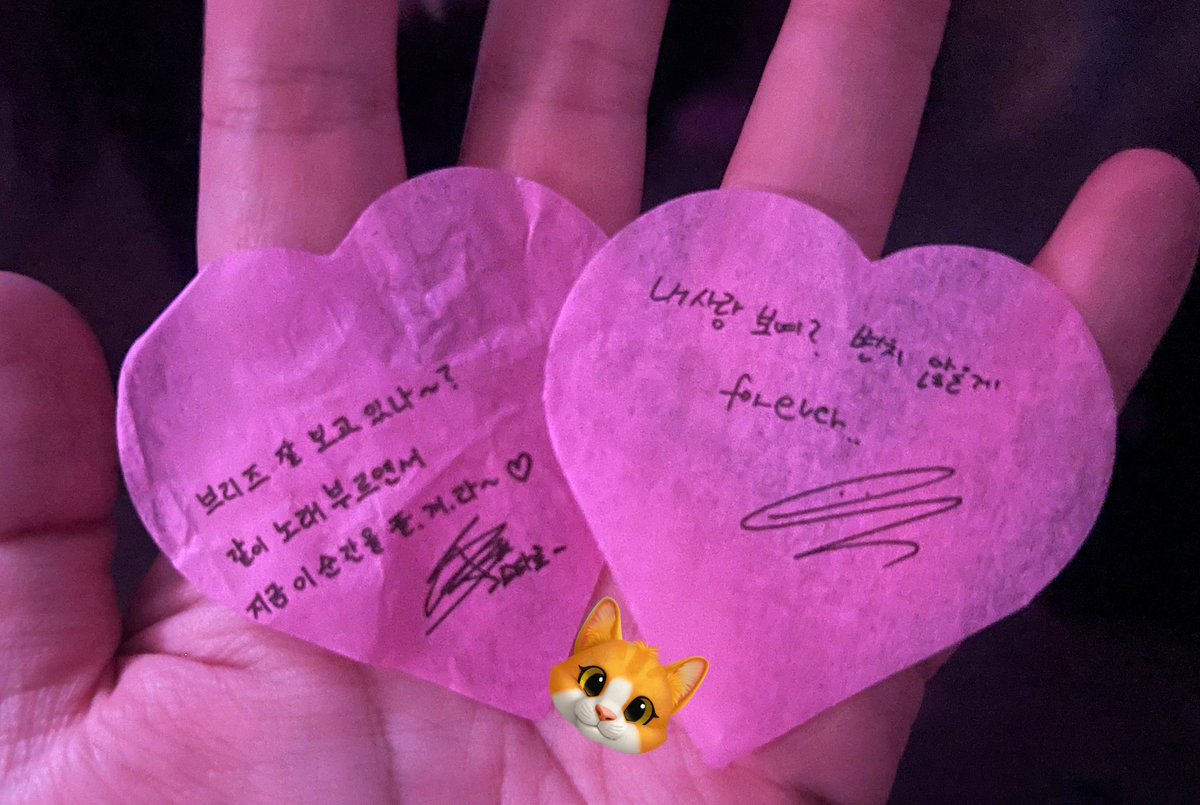 브리즈 잘 보고 있나~?
같이 노래 부르면서
지금 이 순간을 즐.겨.라~ ♡
내 사랑 보여? 변치 않을게
forever..